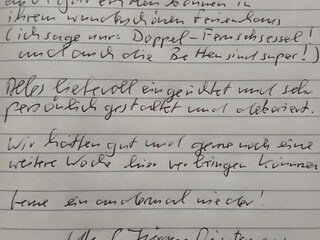 ihrem wunderschönen Ferienhaus
(ich sage nur: Doppel-Fernsehsessel!
und auch die Betten sind super!)
Alles liebevoll eingerichtet und sehr
persönlich gestaltet und dekoriert.
Wir hätten gut und gerne noch eine
weitere Woche hier verbringen können
Gerne ein andermal wieder!